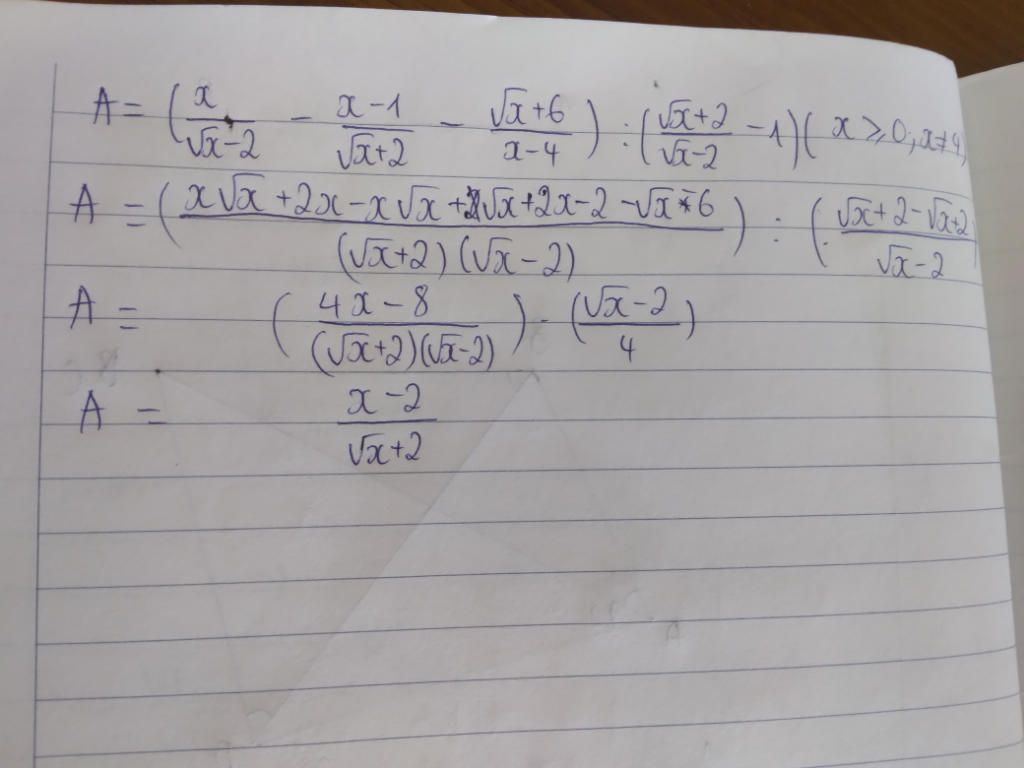 A = (x/(√x-2) - (x-1)/(√x+2) - (√x+6)/(x-4)) : ((√x+2)/(√x-2) - 1) (x ≥ 0; x≠4)
A = ((x√x + 2x - x√x + √x + 2x - 2 - √x - 6)/((√x+2)(√x-2))) : ((√x+2-√x+2)/(√x-2))
A = ((4x-8)/((√x+2)(√x-2))) · ((√x-2)/4)
A = (x-2)/(√x+2)